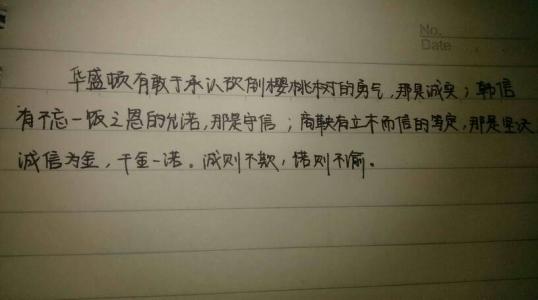 No.
Date
华盛顿有敢于承认砍倒樱桃树的勇气,那是诚实;韩信
有不忘一饭之恩的允诺,那是守信;商鞅有立木而信的笃定,那是坚决
诚信为金,千金一诺。诚则不欺,诺则不渝。